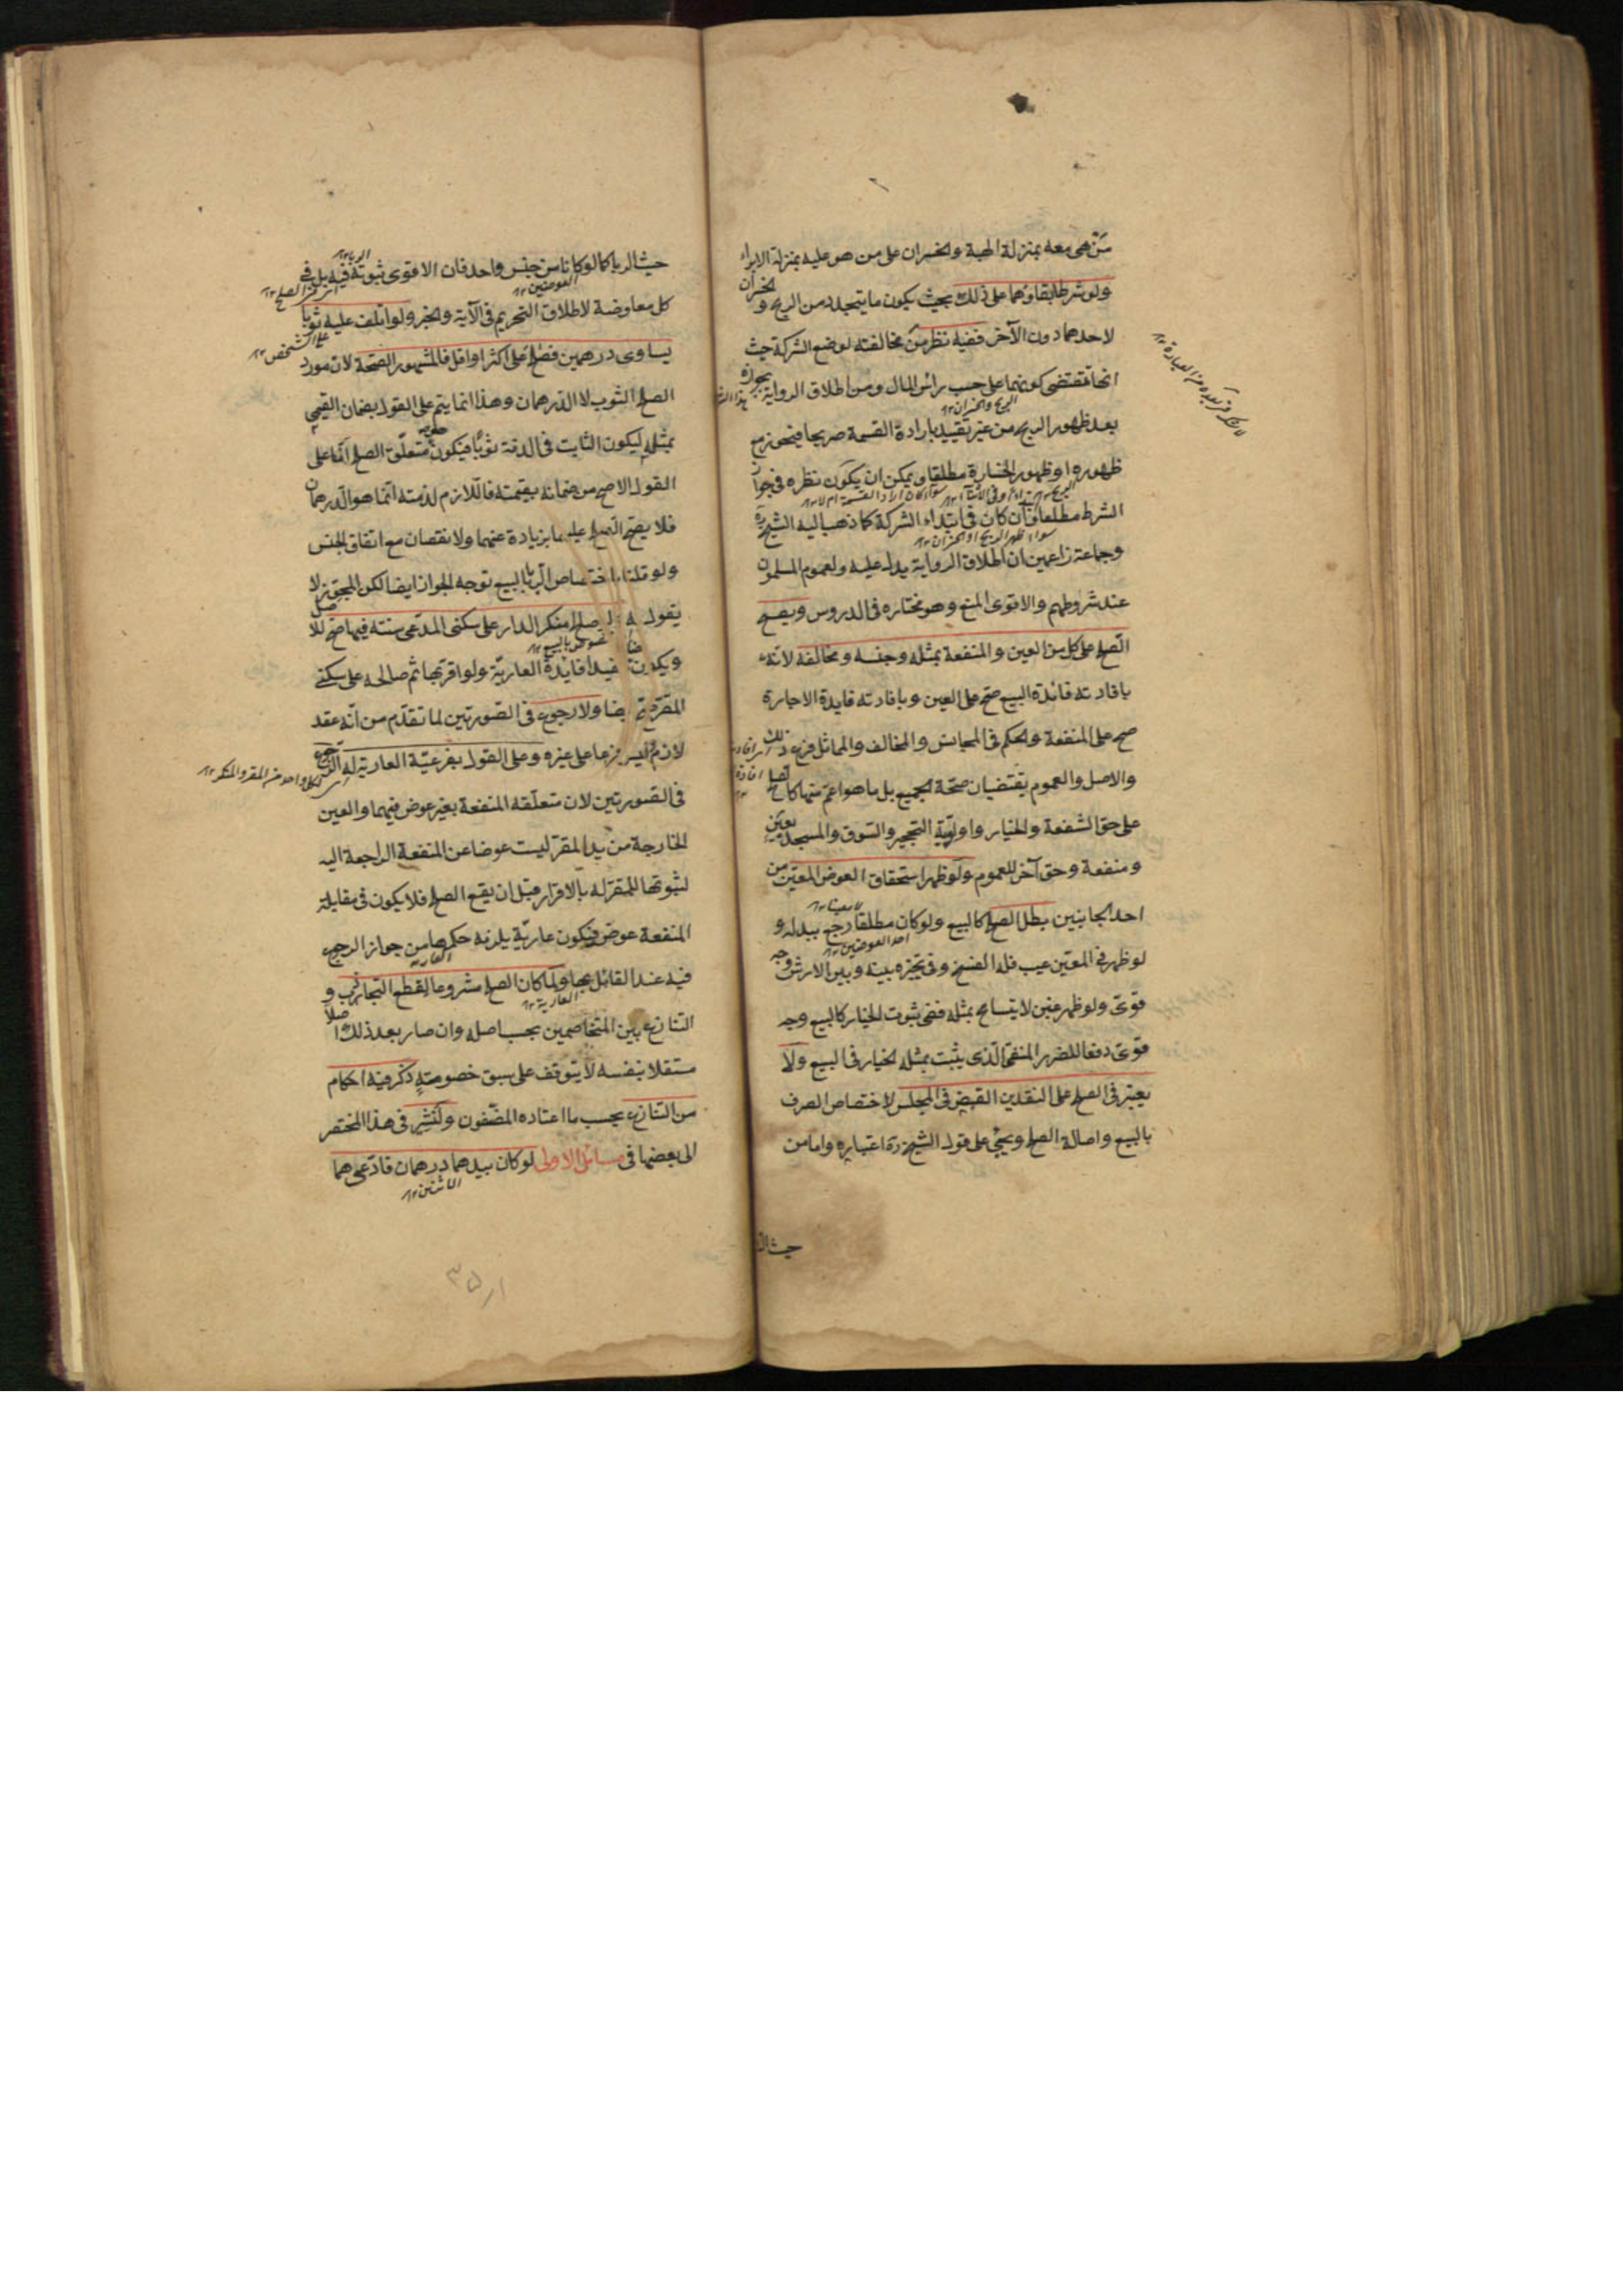 من هی معه بمنزلة الهبة والخسران علی من هو علیه بمنزلة الابراء
ولو شرطا بقاؤهما علی ذلک بحیث یکون ما یتجدد من الربح والخسران
لاحدهما دون الآخر ففیه نظر من مخالفته لوضع الشرکة حیث
انها تقتضی کونهما علی حسب رأس المال ومن اطلاق الروایة بجوازه
بعد ظهور الربح من غیر تقیید بارادة القسمة صریحا فیجوز مع
ظهوره او ظهور الخسارة مطلقا ویمکن ان یکون نظره فی جواز
الشرط مطلقا وان کان فی ابتداء الشرکة کما ذهب الیه الشیخ ره
وجماعة زاعمین ان اطلاق الروایة یدل علیه ولعموم المسلمون
عند شروطهم والاقوی المنع وهو مختاره فی الدروس ویصح
الصلح علی کل من العین والمنفعة بمثله وجنسه ومخالفه لانه
بافادته فائدة البیع صح علی العین وبافادته فایدة الاجارة
صح علی المنفعة والحکم فی المجانس والمخالف والمماثل فرع ذلک
والاصل والعموم یقتضیان صحة الجمیع بل ما هو اعم منها کالصلح
علی حق الشفعة والخیار واولویة التحجیر والسوق والمسجد بعین
ومنفعة وحق آخر للعموم ولو ظهر استحقاق العوض المعین من
احد الجانبین بطل الصلح کالبیع ولو کان مطلقا رجع ببدله و
لو ظهر فی المعین عیب فله الفسخ وفی تخیره بینه وبین الارش وجه
قوی ولو ظهر غبن لا یتسامح بمثله ففی ثبوت الخیار کالبیع وجه
قوی دفعا للضرر المنفی الذی یثبت بمثله الخیار فی البیع ولا
یعتبر فی الصلح علی النقدین القبض فی المجلس لاختصاص الصرف
بالبیع واصالة الصلح ویجیء علی قول الشیخ ره اعتباره واما من
حیث الربا
حیث الربا کما لو کانا من جنس واحد فان الاقوی ثبوته فیه بل فی
کل معاوضة لاطلاق التحریم فی الآیة والخبر ولو اتلف علیه ثوبا
یساوی درهمین فصلح علی اکثر او اقل فالمشهور الصحة لان مورد
الصلح الثوب لا الدرهمان وهذا انما یتم علی القول بضمان القیمی
بمثله لیکون الثابت فی الذمة ثوبا فیکون هو متعلق الصلح اما علی
القول الاصح من ضمانه بقیمته فاللازم لذمته انما هو الدرهمان
فلا یصح الصلح علیهما بزیادة عنهما ولا نقصان مع اتفاق الجنس
ولو قلنا باختصاص الربا بالبیع توجه الجواز ایضا لکن المجوز لا
یقول به ولو صلح منکر الدار علی سکنی المدعی سنة فیها صح للاصل
ویکون هنا مفیدا فایدة العاریة ولو اقر بها ثم صالحه علی سکنی
المقر صح ایضا ولا رجوع فی الصورتین لما تقدم من انه عقد
لازم لیس فرعا علی غیره وعلی القول بفرعیة العاریة له الرجوع
فی الصورتین لان متعلقه المنفعة بغیر عوض فیهما والعین
الخارجة من ید المقر لیست عوضا عن المنفعة الراجعة الیه
لثبوتها للمقر له بالاقرار قبل ان یقع الصلح فلا یکون فی مقابلة
المنفعة عوض فیکون عاریة یلزمه حکمها من جواز الرجوع
فیه عند القائل بها ولما کان الصلح مشروعا لقطع التجاذب و
التنازع بین المتخاصمین بحسب اصله وان صار بعد ذلک اصلا
مستقلا بنفسه لا یتوقف علی سبق خصومة ذکر فیه احکام
من التنازع بحسب ما اعتاده المصنفون ولنشر فی هذا المختصر
الی بعضها فی مسائل الاولی لو کان بیدهما درهمان فادعی هما